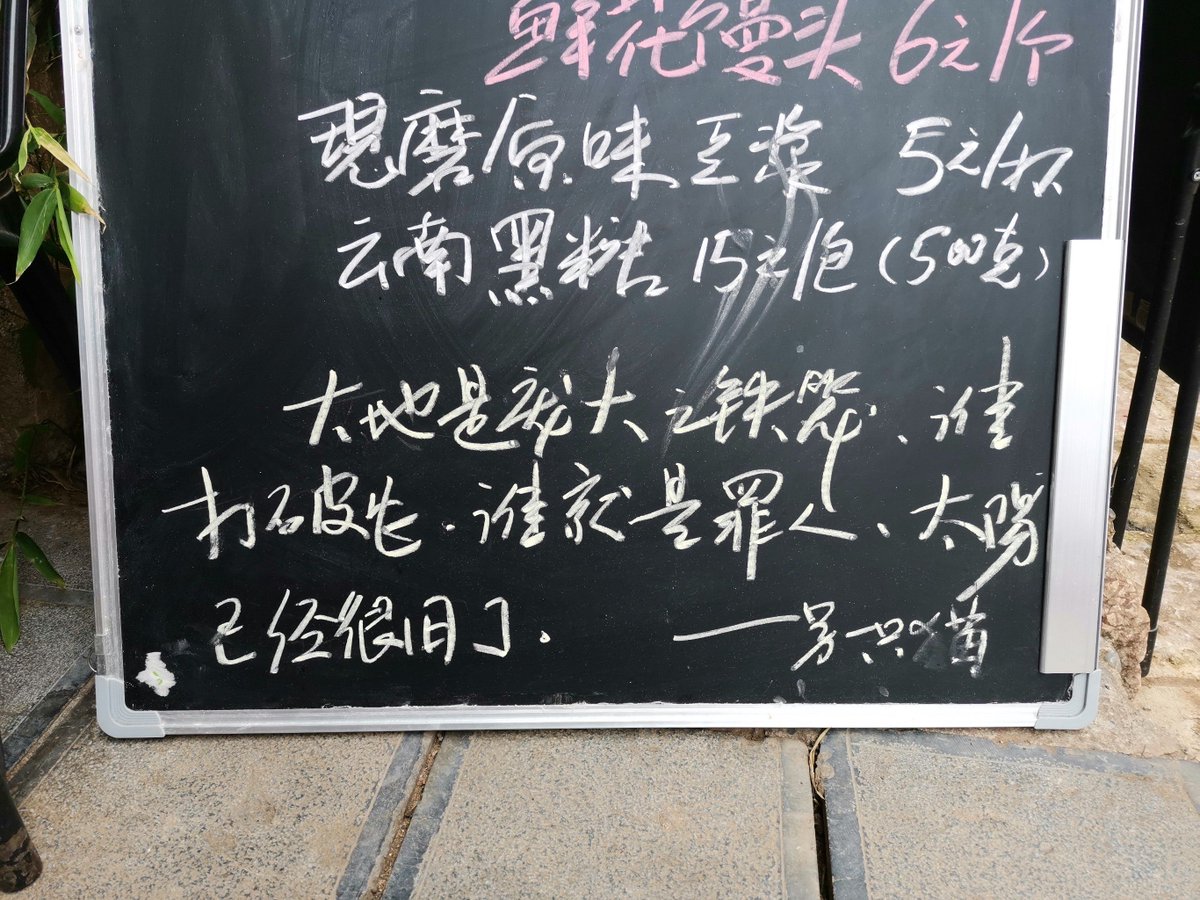 鲜花馒头 6元/个
现磨原味豆浆 5元/杯
云南黑糖 15元/包(500克)
大地是庞大之铁笼、谁
打破.谁就是罪人、太陽
已经很旧了.